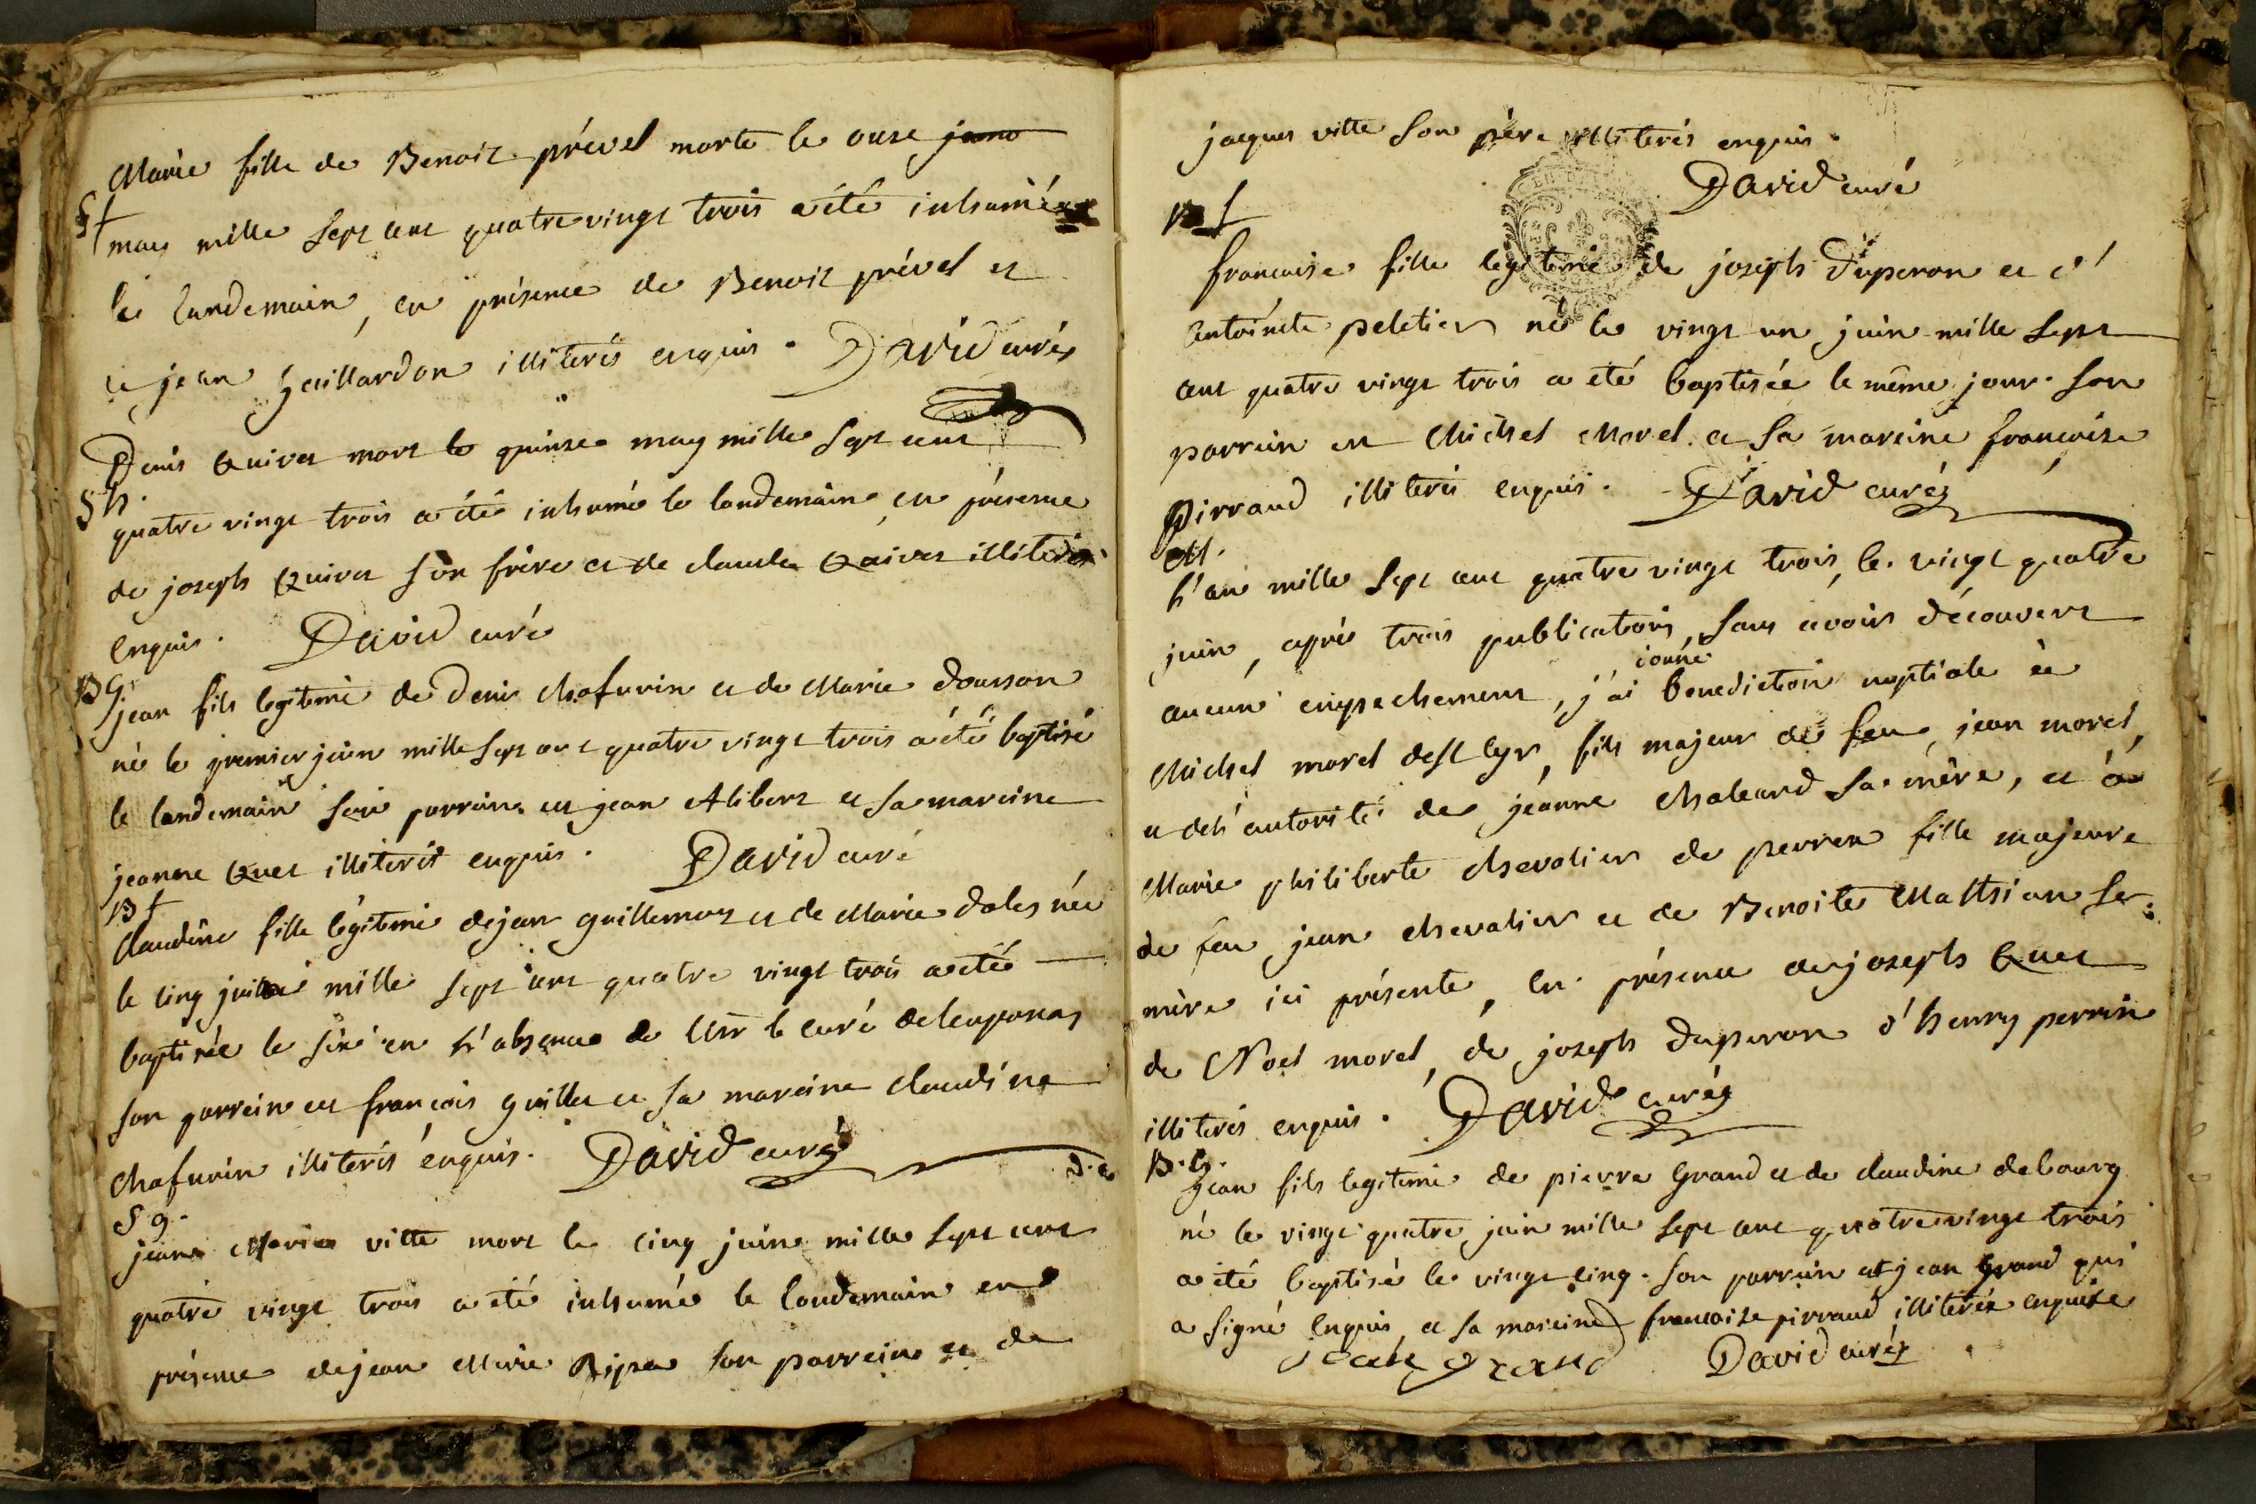 Marie fille de Benoit prével morte le onse
Sf
may mille Sept cent quatre vingt trois a été inhumée
le landemain, en présence de Benoit prével et
de jean Gaillardon illiterés enquis. David curé
Denis Quivet mort le quinse may mille Sept cent
Sh.
quatre vingt trois a été inhumé le landemain en présence
de joseph Quivet son frère et de claude Quivet illiterés
enquis. David curé
BG
jean fils legitime de Denis Chafurin et de Marie dousson
né le premier juin mille sept cent quatre vingt trois a été baptisé
le landemain son parrain est jean Alibert et sa mareine
jeanne Quet illiterés enquis. David curé
Bf
Claudine fille légitime de jean guillemoz et de Marie dales née
le cinq mille sept cent quatre vingt trois a été
baptisée le sixe en l'absence de Mr le curé de
son parrein est françois guillet et sa mareine claudine
Chafurin illiterés enquis. David curé
D.c
S g.
jean Marie vitte mort le cinq juin mille Sept cent
quatre vingt trois a été inhumé le landemain en
présence de jean Marie Ripe son parrein et de
jaques vitte son père illiterés enquis.
David curé
Bf
francoise fille legitime de joseph Duperon et d'
antoinete peletier né le vingt un juin mille sept
cent quatre vingt trois a été baptisée le même jour. son
parrein est Michel Morel et sa mareine francoise
Pirraud illiterés enquis. David curé
M.
L'an mille sept cent quatre vingt trois, le vingt quatre
juin, après trois publications, sans avoir découvert
aucun empechement, j'ai donné benediction nuptiale à
Michel morel de St Cyr, fils majeur de feu jean morel,
et de l'autorité de jeanne Chaleard sa mère, et à
Marie philiberte chevalier de perren fille majeure
de feu jean chevalier et de Benoite Matthian sa
mère ici présente, en présence de joseph Quet
de Noel morel, de joseph Duperon d'henry perrin
illiterés enquis. David curé
B.G.
Jean fils legitime de pierre Grand et de claudine debourg
né le vingt quatre juin mille sept cent quatre vingt trois
a été baptisé le vingt cinq. son parrein est jean Grand qui
a signé enquis, et sa mareine francoise pirraud illiterée enquise
jean grand David curé